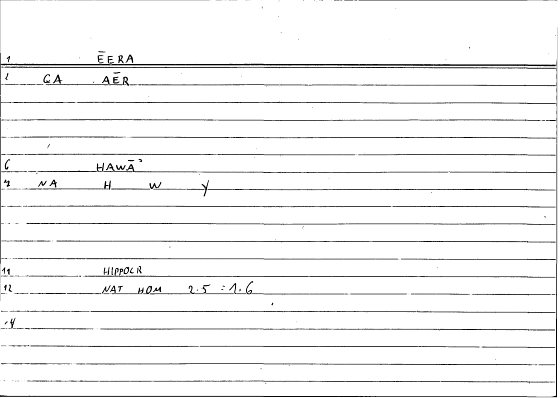 1 ĒERA
GA AĒR
6 HAWĀʾ
7 NA H W Y
11 HIPPOCR
12 NAT HOM 2.5 : 1.6
14